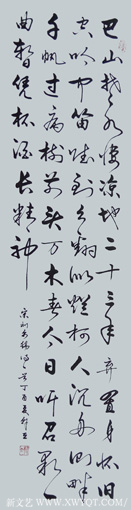 巴山楚水凄凉地二十三年弃置身怀旧
空吟闻笛赋到乡翻似烂柯人沉舟侧畔
千帆过病树前头万木春今日听君歌一
曲暂凭杯酒长精神
刘禹锡诗一首丁酉夏
新文艺 - WWW.XWYQT.COM